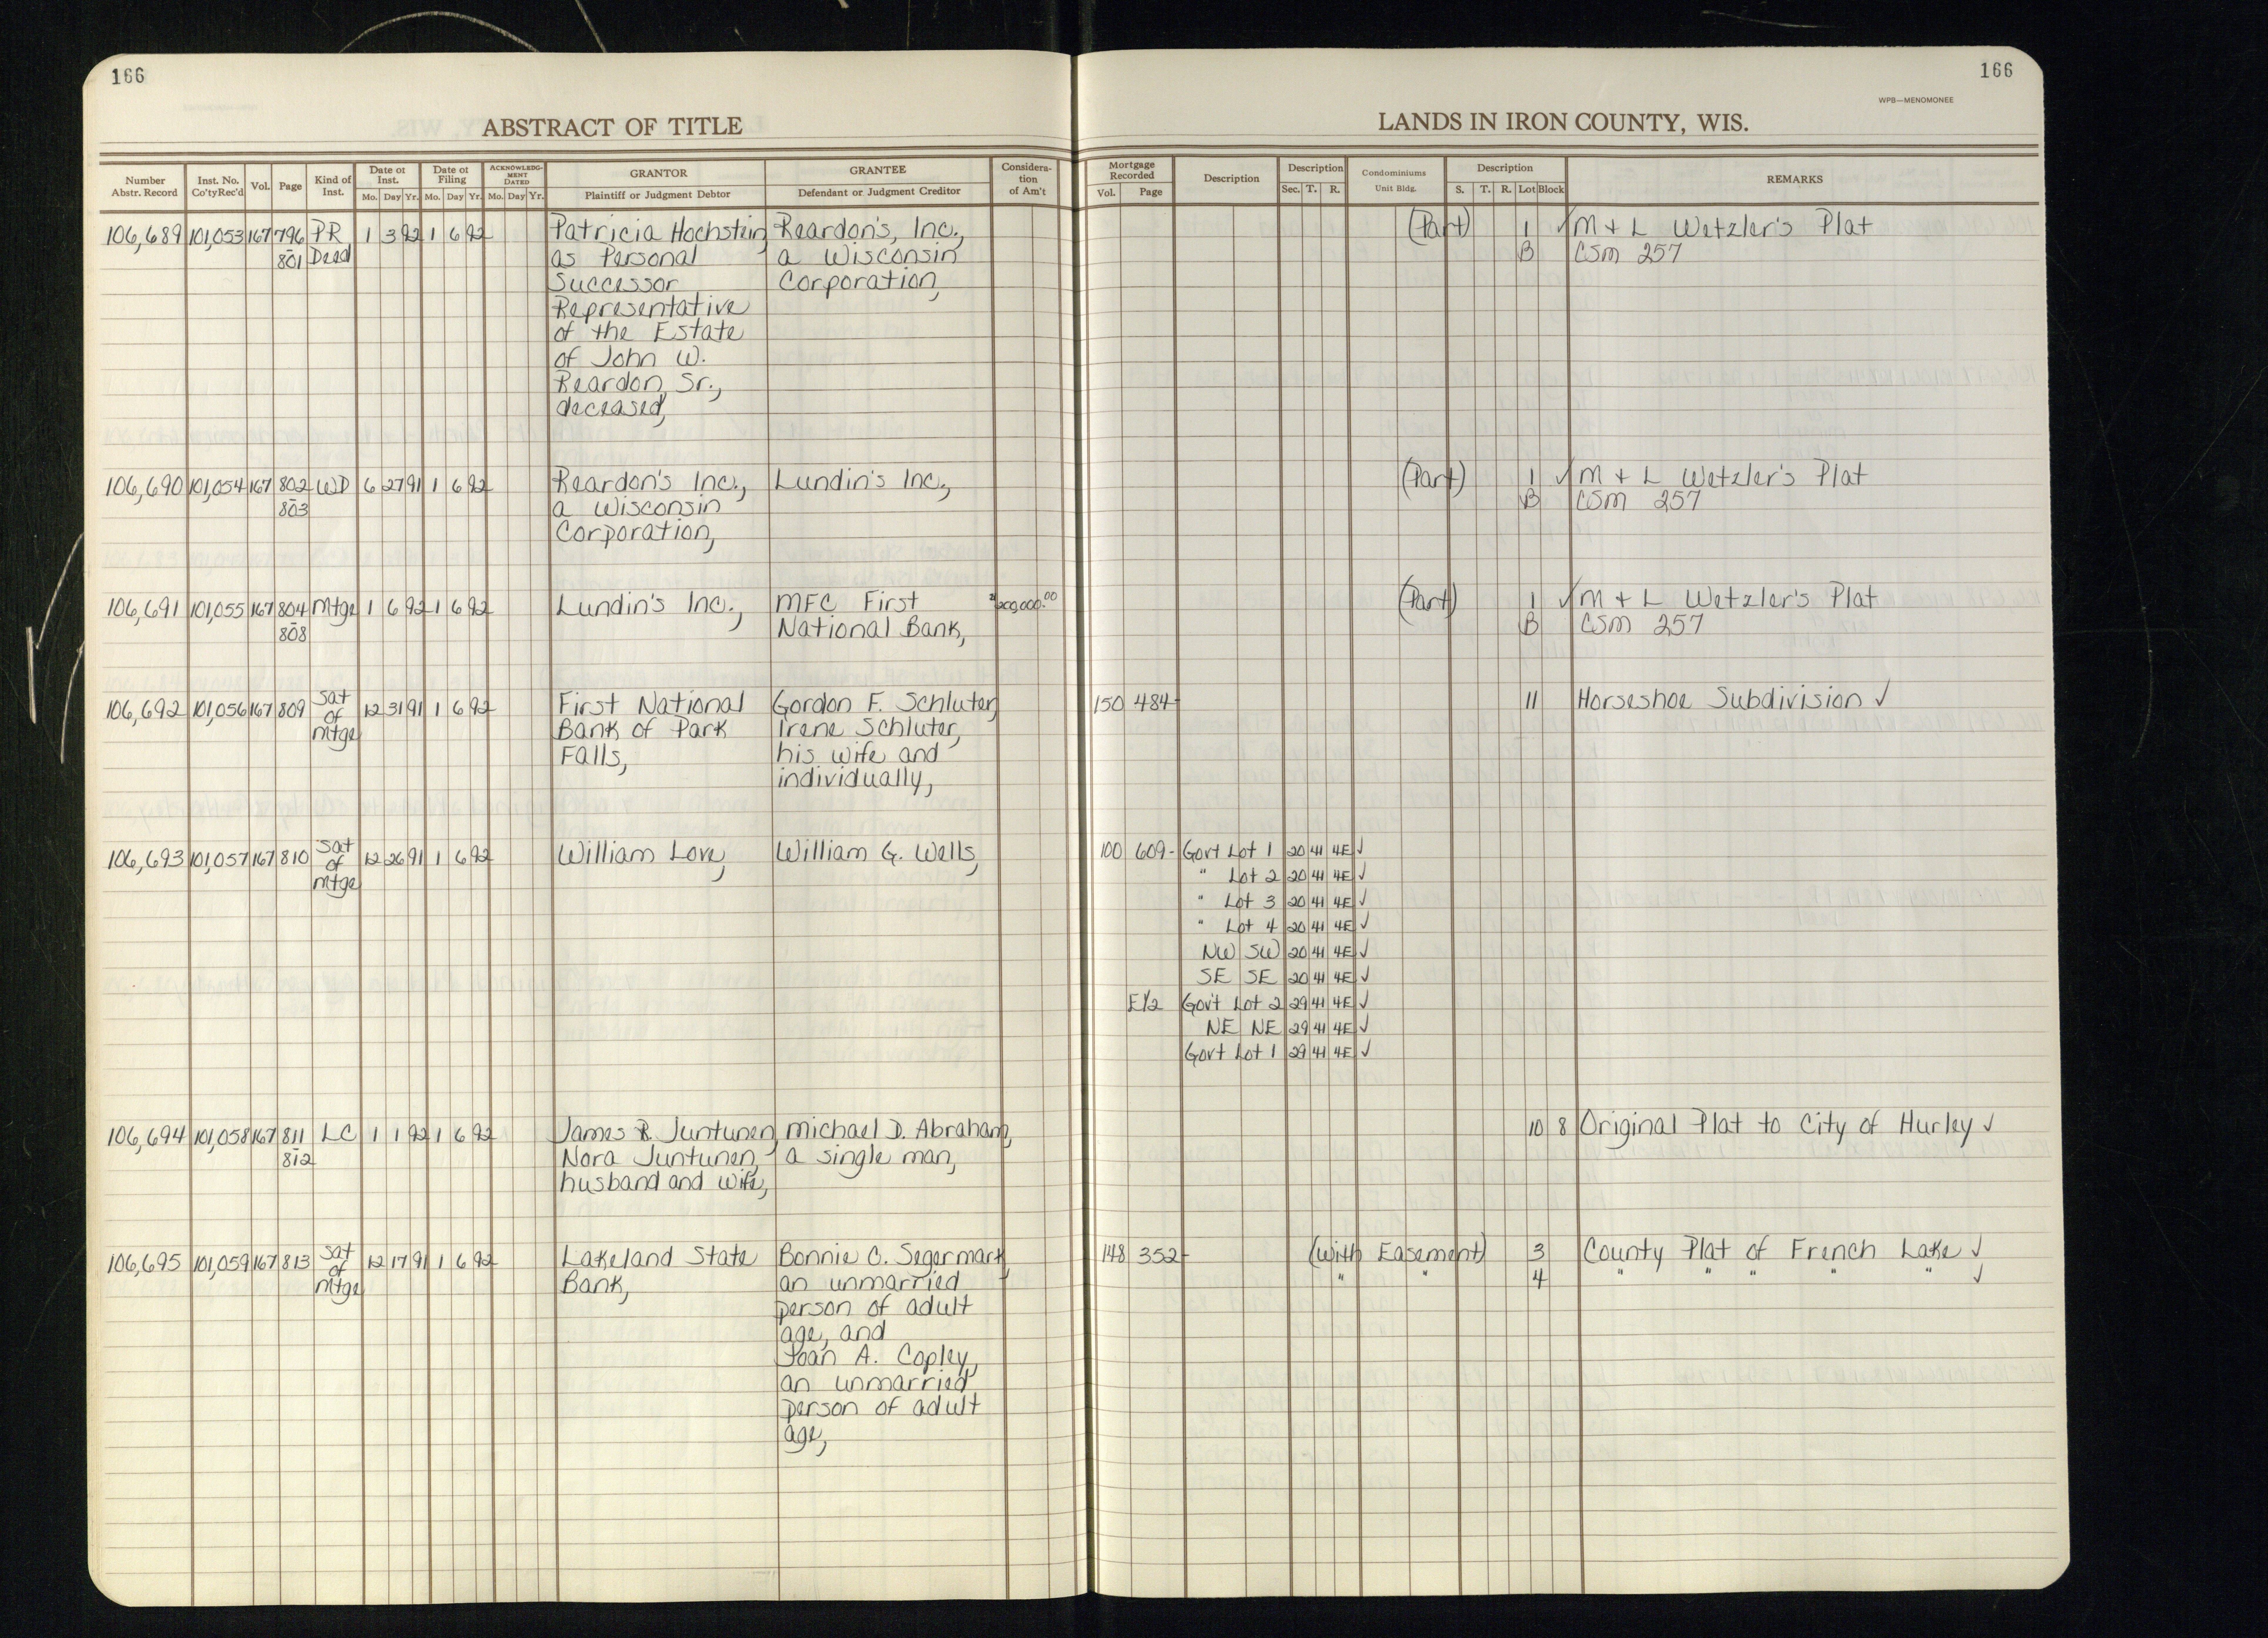 166
ABSTRACT OF TITLE
Number Abstr. Record
Inst. No. Co'ty Rec'd
Vol.
Page
Kind of Inst.
Date of Inst. Mo. Day Yr.
Date of Filing Mo. Day Yr.
ACKNOWLEDGMENT DATED Mo. Day Yr.
GRANTOR Plaintiff or Judgment Debtor
GRANTEE Defendant or Judgment Creditor
Consideration of Am't
106,689 101,053 167 796 PR 1 3 92 1 6 92 Patricia Hochstein, Reardon's, Inc.,
801 Deed as Personal a Wisconsin
Successor Corporation,
Representative
of the Estate
of John W.
Reardon, Sr.,
deceased,
106,690 101,054 167 802 WD 6 27 91 1 6 92 Reardon's Inc., Lundin's Inc.,
803 a Wisconsin
Corporation,
106,691 101,055 167 804 Mtge 1 6 92 1 6 92 Lundin's Inc., MFC First
808 National Bank,
106,692 101,056 167 809 Sat of Mtge 12 31 91 1 6 92 First National Gordon F. Schluter,
Bank of Park Irene Schluter,
Falls, his wife and
individually,
106,693 101,057 167 810 Sat of Mtge 12 26 91 1 6 92 William Love, William G. Wells,
106,694 101,058 167 811 LC 1 1 92 1 6 92 James R. Juntunen, Michael D. Abraham,
812 Nora Juntunen, a single man,
husband and wife,
106,695 101,059 167 813 Sat of Mtge 12 17 91 1 6 92 Lakeland State Bonnie C. Segermark,
Bank, an unmarried
person of adult
age, and
Joan A. Copley,
an unmarried
person of adult
age,
166
WPB—MENOMONEE
LANDS IN IRON COUNTY, WIS.
Mortgage Recorded Vol. Page
Description
Description Sec. T. R.
Condominiums Unit Bldg.
Description S. T. R. Lot Block
REMARKS
(Part) 1 ✓ M + L Wetzler's Plat
B CSM 257
(Part) 1 ✓ M + L Wetzler's Plat
B CSM 257
(Part) 1 ✓ M + L Wetzler's Plat
B CSM 257
150 484- 11 Horseshoe Subdivision ✓
100 609- Gov't Lot 1 20 41 4E ✓
" Lot 2 20 41 4E ✓
" Lot 3 20 41 4E ✓
" Lot 4 20 41 4E ✓
NW SW 20 41 4E ✓
SE SE 20 41 4E ✓
E1/2 Gov't Lot 2 29 41 4E ✓
NE NE 29 41 4E ✓
Gov't Lot 1 29 41 4E ✓
10 8 Original Plat to City of Hurley ✓
148 352- (With Easement) 3 County Plat of French Lake ✓
" " 4 " " " " " ✓